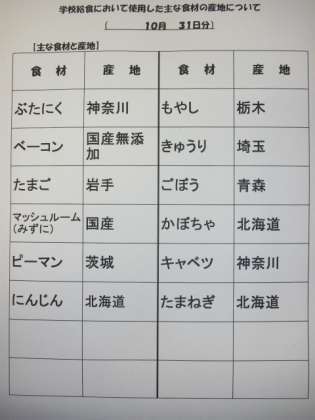 学校給食において使用した主な食材の産地について
( 10月 31日分)
【主な食材と産地】
食 材 産 地 食 材 産 地
ぶたにく 神奈川 もやし 栃木
ベーコン 国産無添加 きゅうり 埼玉
たまご 岩手 ごぼう 青森
マッシュルーム(みずに) 国産 かぼちゃ 北海道
ピーマン 茨城 キャベツ 神奈川
にんじん 北海道 たまねぎ 北海道